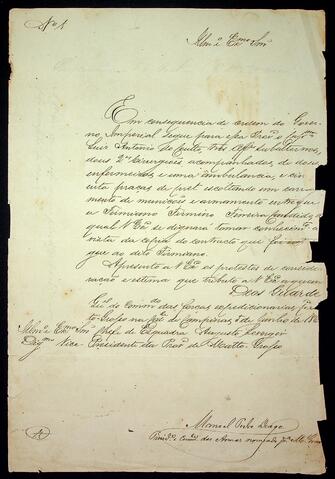 Nº 1
Illmº e Exmº Snr
Em consequencia de ordem do Gover-
no Imperial segue para essa Provª o Capᵐ
Luis Antonio do Couto, três Offᵉˢ subalternos,
dous 2ᵒˢ Cirurgiões acompanhados, de dous
enfermeiros e uma ambulancia, e cin
coenta praças de pret escoltando um carre-
mento de munições e armamento entregue
a Firmiano Firmino Ferreira
qual V Exª se dignará tomar conhecimento
á vista da copia do contracto que
gue ao dito Firmiano.
Apresento a V Exª os protestos de conside-
ração e estima que tributo a V Exª a quem
Deos Guarde
Qel do Commdo das forças expedicionarias
to Grosso na de Campinas, de Junho de 186
Illmº e Exmº Snr Chefe de Esquadra Augusto Leverger
Digmº Vice Presidente da Provª de Matto Grosso
Manoel Pedro Drago
Presidᵉ e Comdᵉ das Armas nomeado pª Mº Grosso